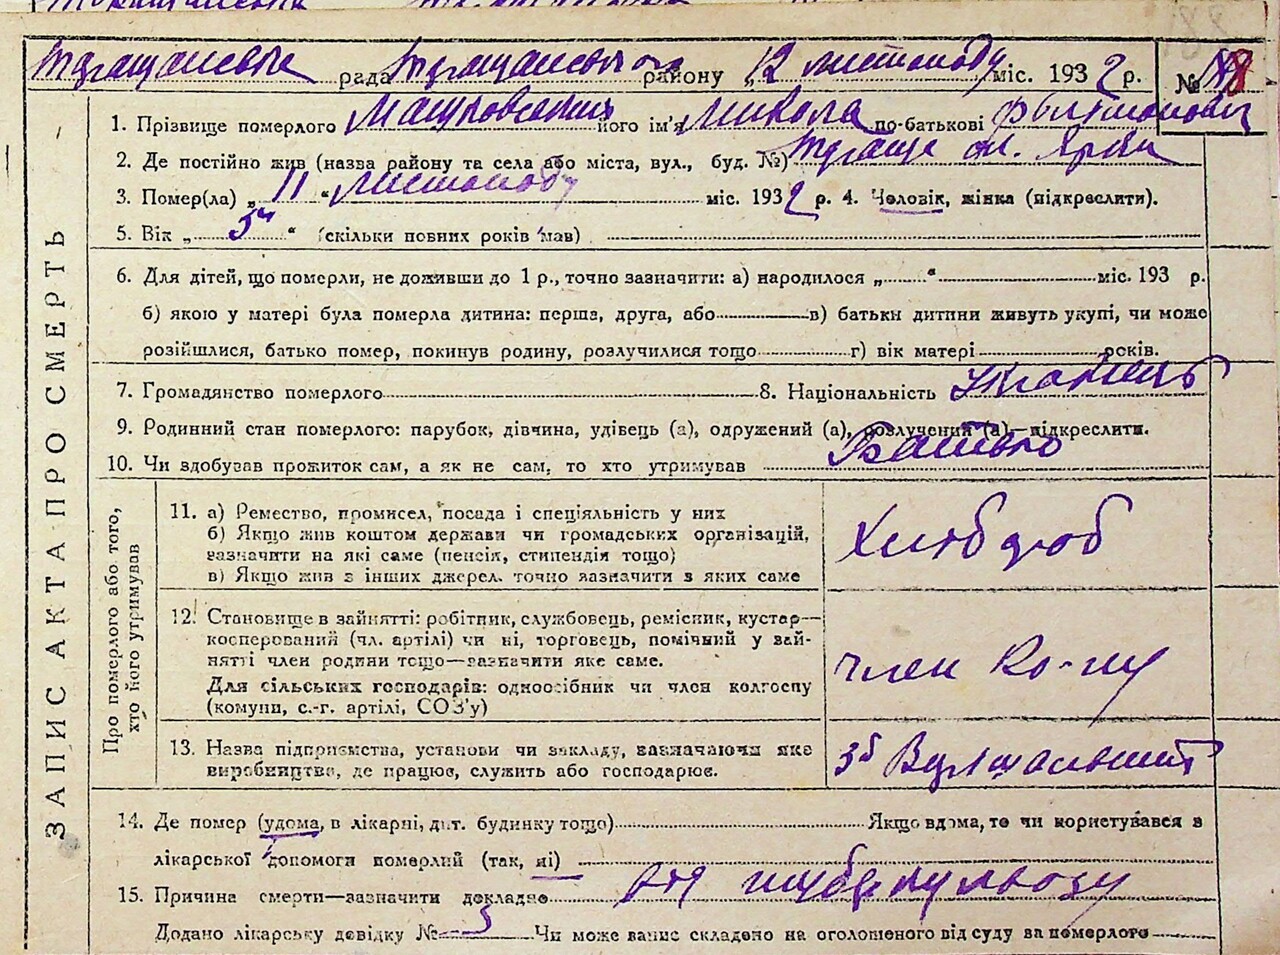 рада району „12 листопаду міс. 1932 р. №
1. Прізвище померлого його ім'я Микола по-батькові
2. Де постійно жив (назва району та села або міста, вул., буд. №)
3. Помер(ла) „11“ листопаду міс. 1932 р. 4. Человік, жінка (підкреслити).
5. Вік „ “ (скільки повних років мав)
6. Для дітей, що померли, не доживши до 1 р., точно зазначити: а) народилося „ “ міс. 193 р.
б) якою у матері була померла дитина: перша, друга, або в) батьки дитини живуть укупі, чи може
розійшлися, батько помер, покинув родину, розлучилися тощо г) вік матері років.
7. Громадянство померлого 8. Національність Українець
9. Родинний стан померлого: парубок, дівчина, удівець (а), одружений (а), розлучений (а)—підкреслити.
10. Чи здобував прожиток сам, а як не сам, то хто утримував Батько
ЗАПИС АКТА ПРО СМЕРТЬ
Про померлого або того,
хто його утримував
11. а) Ремество, промисел, посада і спеціяльність у них
б) Якщо жив коштом держави чи громадських організацій,
зазначити на які саме (пенсія, стипендія тощо)
в) Якщо жив з інших джерел, точно зазначити з яких саме
Хлібороб
12. Становище в зайнятті: робітник, службовець, ремісник, кустар—
косперований (чл. артілі) чи ні, торговець, помічний у зай-
нятті член родини тощо—зазначити яке саме.
Для сільських господарів: одноосібник чи член колгоспу
(комуни, с.-г. артілі, СОЗ'у)
член
13. Назва підприємства, установи чи закладу, зазначаючи яке
виробництво, де працює, служить або господарює.
14. Де помер (удома, в лікарні, дит. будинку тощо) Якщо вдома, то чи користувався з
лікарської допомоги померлий (так, ні)
15. Причина смерти—зазначити докладно від туберкульозу
Додано лікарську довідку № Чи може запис складено на оголошеного від суду за померлого